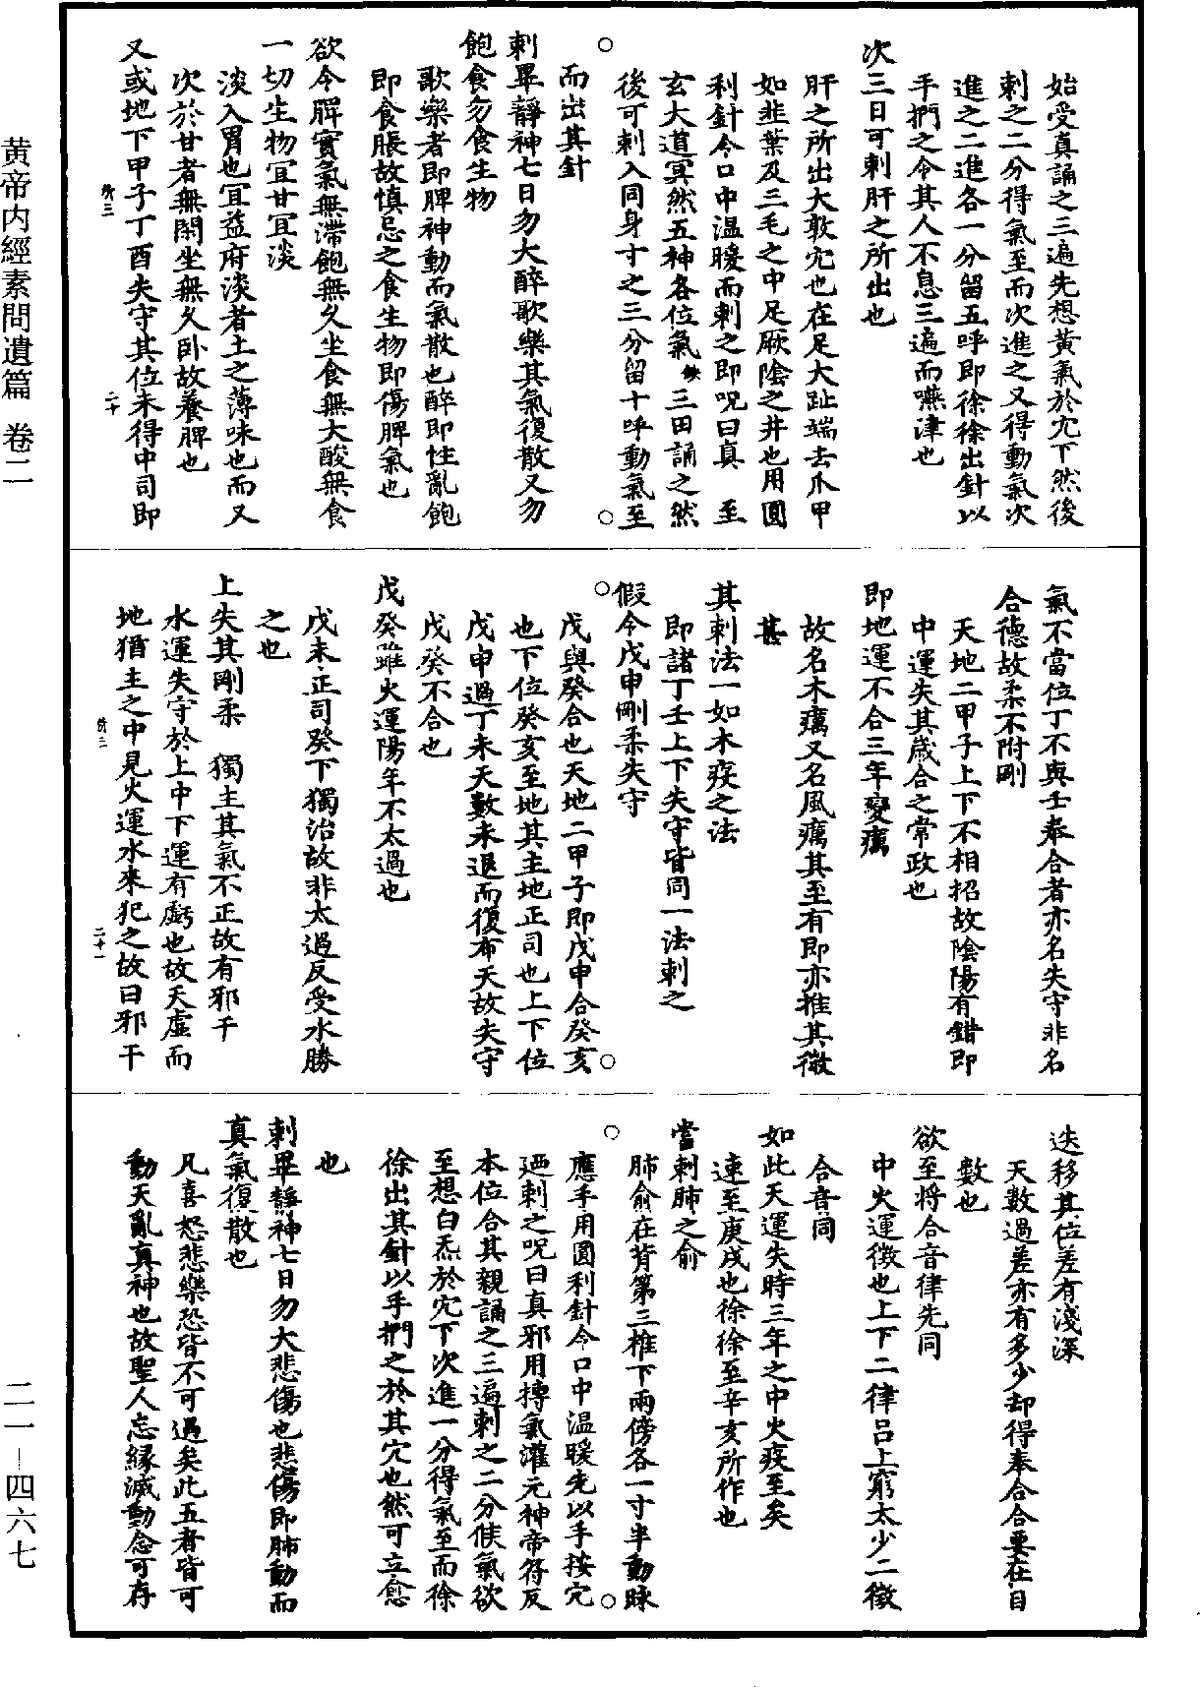 始受真誦之三遍先想黃氣於穴下然後
刺之二分得氣至而次進之又得動氣次
進之二進各一分留五呼即徐徐出針以
手捫之令其人不息三遍而嚥津也
次三日可刺肝之所出也
肝之所出大敦穴也在足大趾端去爪甲
如韭葉及三毛之中足厥陰之井也用圓
利針令口中溫暖而刺之即呪曰真 至
玄大道冥然五神各位氣 三田誦之然
後可刺入同身寸之三分留十呼動氣至
而出其針
刺畢靜神七日勿大醉歌樂其氣復散又勿
飽食勿食生物
歌樂者即脾神動而氣散也醉即性亂飽
即食脹故慎忌之食生物即傷脾氣也
欲令脾實氣無滯飽無久坐食無大酸無食
一切生物宜甘宜淡
淡入胃也宜益府淡者土之薄味也而又
次於甘者無閑坐無久卧故養脾也
又或地下甲子丁酉失守其位未得中司即
二十
氣不當位丁不與壬奉合者亦名失守非名
合德故柔不附剛
天地二甲子上下不相招故陰陽有錯即
中運失其歲合之常政也
即地運不合三年變癘
故名木癘又名風癘其至有即亦推其微
甚
其刺法一如木疫之法
即諸丁壬上下失守皆同一法刺之
假令戊申剛柔失守
戊與癸合也天地二甲子即戊申合癸亥
也下位癸亥至地其主地正司也上下位
戊申過丁未天數未退而復布天故失守
戊癸不合也
戊癸雖火運陽年不太過也
戊未正司癸下獨治故非太過反受水勝
之也
上失其剛柔 獨主其氣不正故有邪干
水運失守於上中下運有虧也故天虛而
地猶主之中見火運水來犯之故曰邪干
二十一
迭移其位差有淺深
天數過差亦有多少却得奉合合要在目
數也
欲至將合音律先同
中火運徵也上下二律呂上窮太少二徵
合音同
如此天運失時三年之中火疫至矣
速至庚戌也徐徐至辛亥所作也
當刺肺之俞
肺俞在背第三椎下兩傍各一寸半動脉
應手用圓利針令口中溫暖先以手按穴
迺刺之呪曰真邪用搏氣灌元神帝符反
本位合其親誦之三遍刺之二分候氣欲
至想白炁於穴下次進一分得氣至而徐
徐出其針以手捫之於其穴也然可立愈
也
刺畢靜神七日勿大悲傷也悲傷即肺動而
真氣復散也
凡喜怒悲樂恐皆不可過矣此五者皆可
動天亂真神也故聖人忘緣滅動念可存
黄帝内經素問遺篇 卷二
二一—四六七